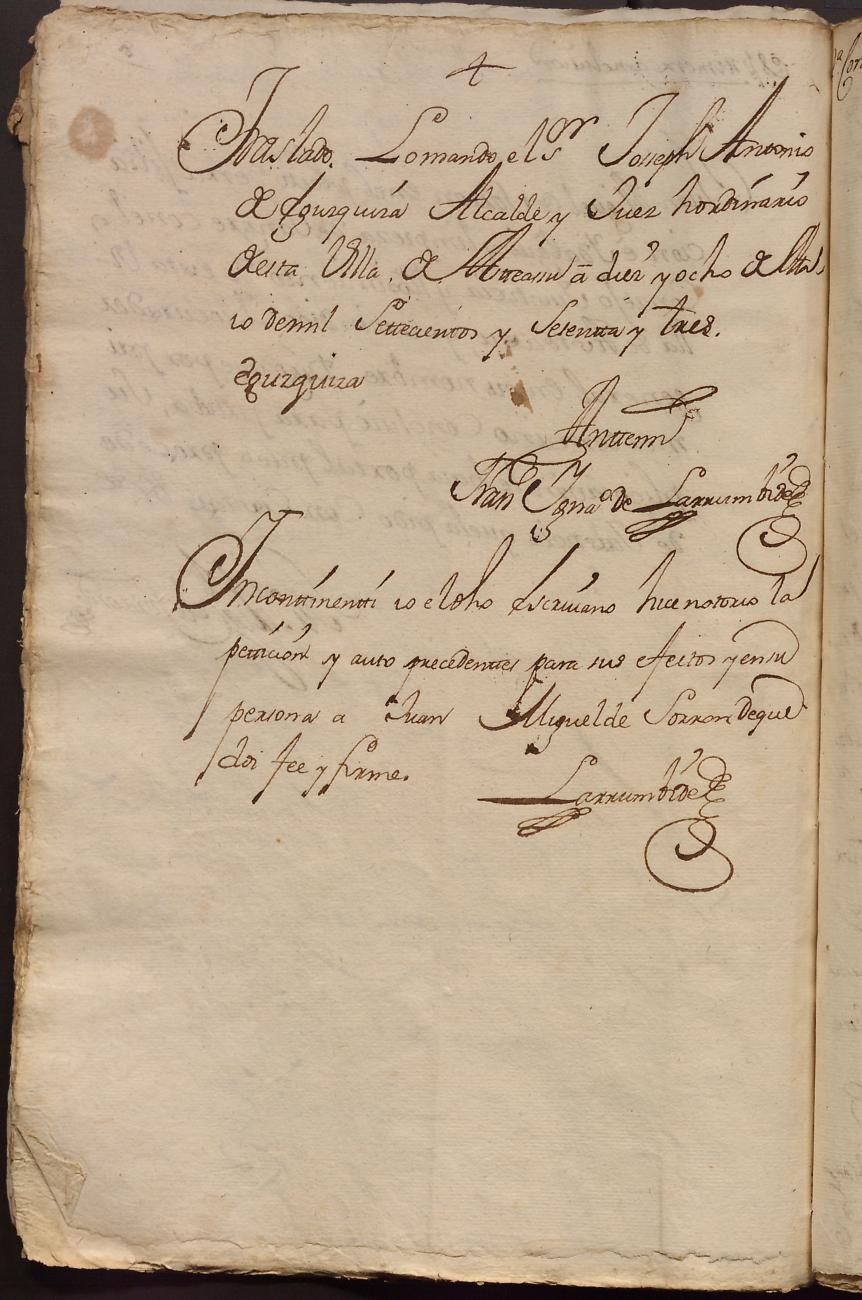 Traslado. Lo mando el Sor Joseph Antonio
de Eguzquiza Alcalde y Juez hordinario
desta Villa de Atteassu a diez y ocho de Ma
io de mil Settecientos y Sesentta y tres.
Eguzquiza
Antte mi
Franco Ignao de Larrumbide
Incontinentti io el dho Escrivano hice notorio la
petticion y auto precedenttes para sus efectos y en su
persona a Juan Miguel de Sorrondegui
doi fee y firme.
Larrumbide